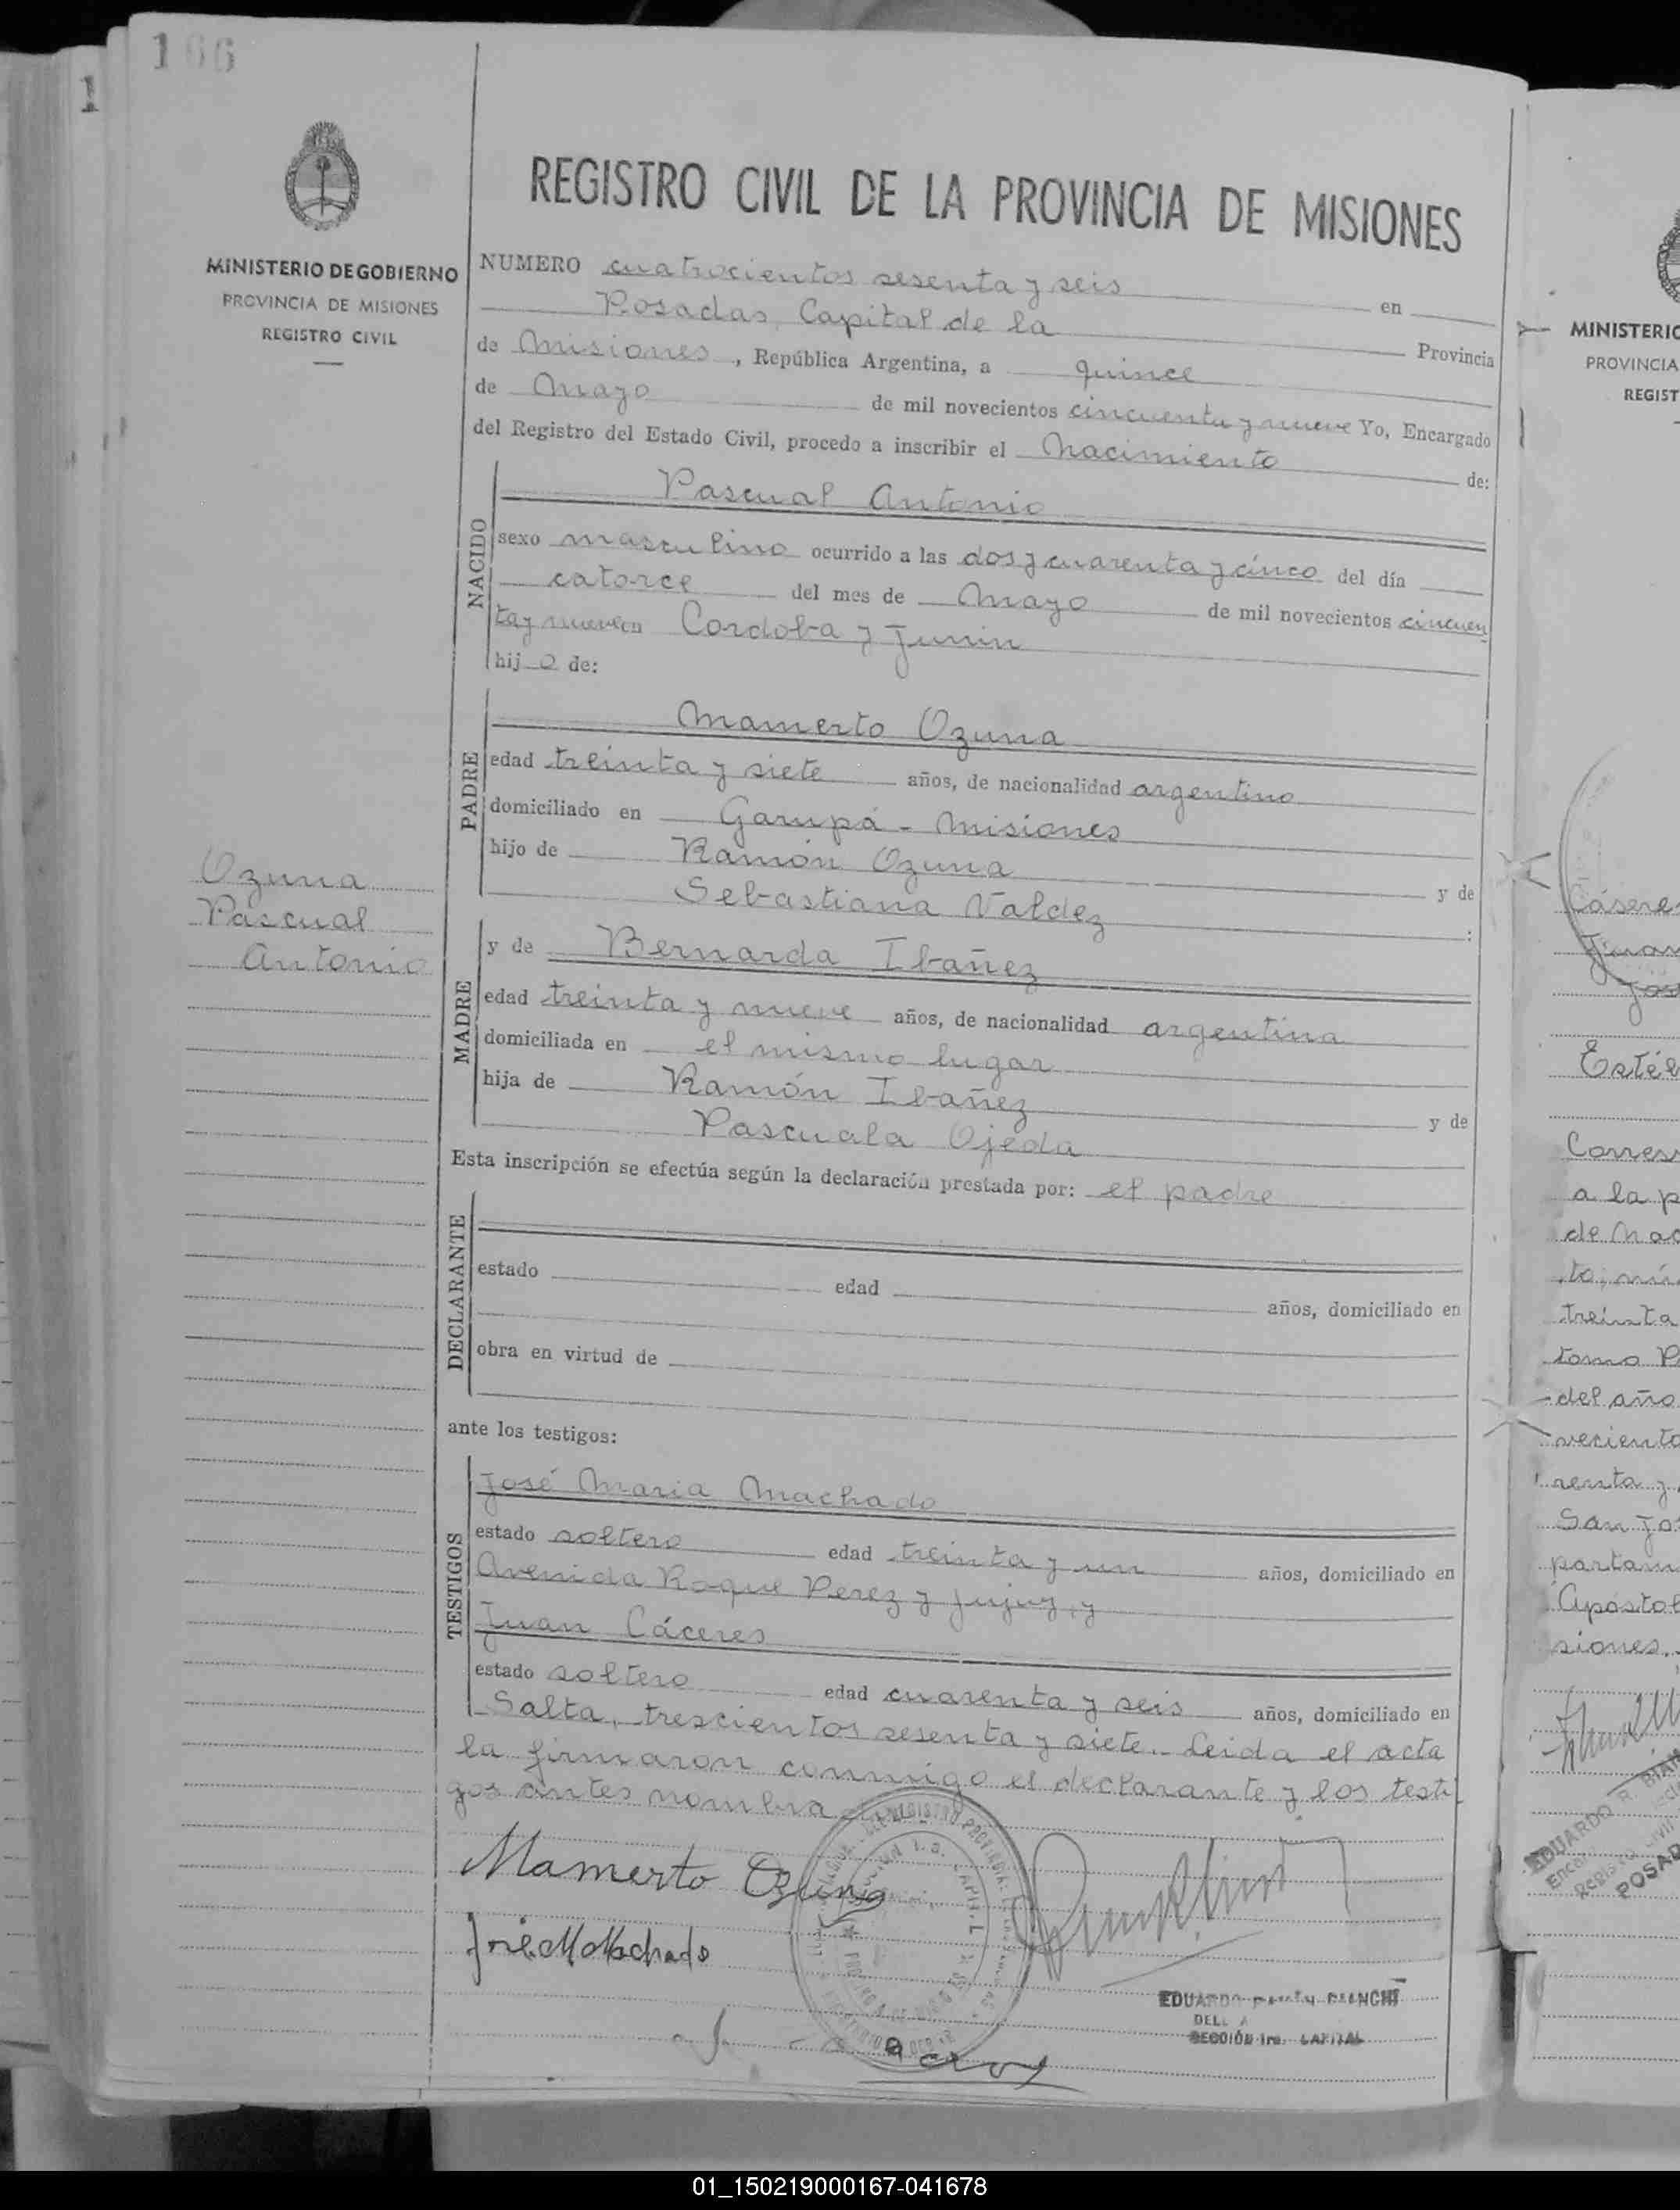 166
1
MINISTERIO DE GOBIERNO
PROVINCIA DE MISIONES
REGISTRO CIVIL
REGISTRO CIVIL DE LA PROVINCIA DE MISIONES
NUMERO cuatrocientos sesenta y seis en
Posadas, Capital de la Provincia
de Misiones, República Argentina, a quince
de Mayo de mil novecientos cincuenta y nueve Yo, Encargado
del Registro del Estado Civil, procedo a inscribir el Nacimiento de:
NACIDO
Pascual Antonio
sexo masculino ocurrido a las dos y cuarenta y cinco del día
catorce del mes de Mayo de mil novecientos cincuen
ta y nueve en Cordoba y Junin
hijo de:
PADRE
Mamerto Ozuna
edad treinta y siete años, de nacionalidad argentino
domiciliado en Garupá - Misiones
hijo de Ramón Ozuna y de
Sebastiana Valdez :
MADRE
y de Bernarda Ibañez
edad treinta y nueve años, de nacionalidad argentina
domiciliada en el mismo lugar
hija de Ramón Ibañez y de
Pascuala Ojeda
Ozuna
Pascual
Antonio
Esta inscripción se efectúa según la declaración prestada por: el padre
DECLARANTE
estado edad años, domiciliado en
obra en virtud de
ante los testigos:
TESTIGOS
José Maria Machado
estado soltero edad treinta y un años, domiciliado en
Avenida Roque Perez y Jujuy, y
Juan Cáceres
estado soltero edad cuarenta y seis años, domiciliado en
Salta, trescientos sesenta y siete. Leida el acta
la firmaron conmigo el declarante y los testi
gos antes nombra
Mamerto Ozuna
José M Machado
EDUARDO RAMÓN BIANCHI
SECCIÓN 1ra. CAPITAL
MINISTERIO
PROVINCIA
REGIST
Cásere
Estéb
a la p
de Nac
treinta
tomo P
del año
veciento
renta y
San Jo
partam
Apóstol
siones.
EDUARDO R. BIAN
POSAD
01_150219000167-041678